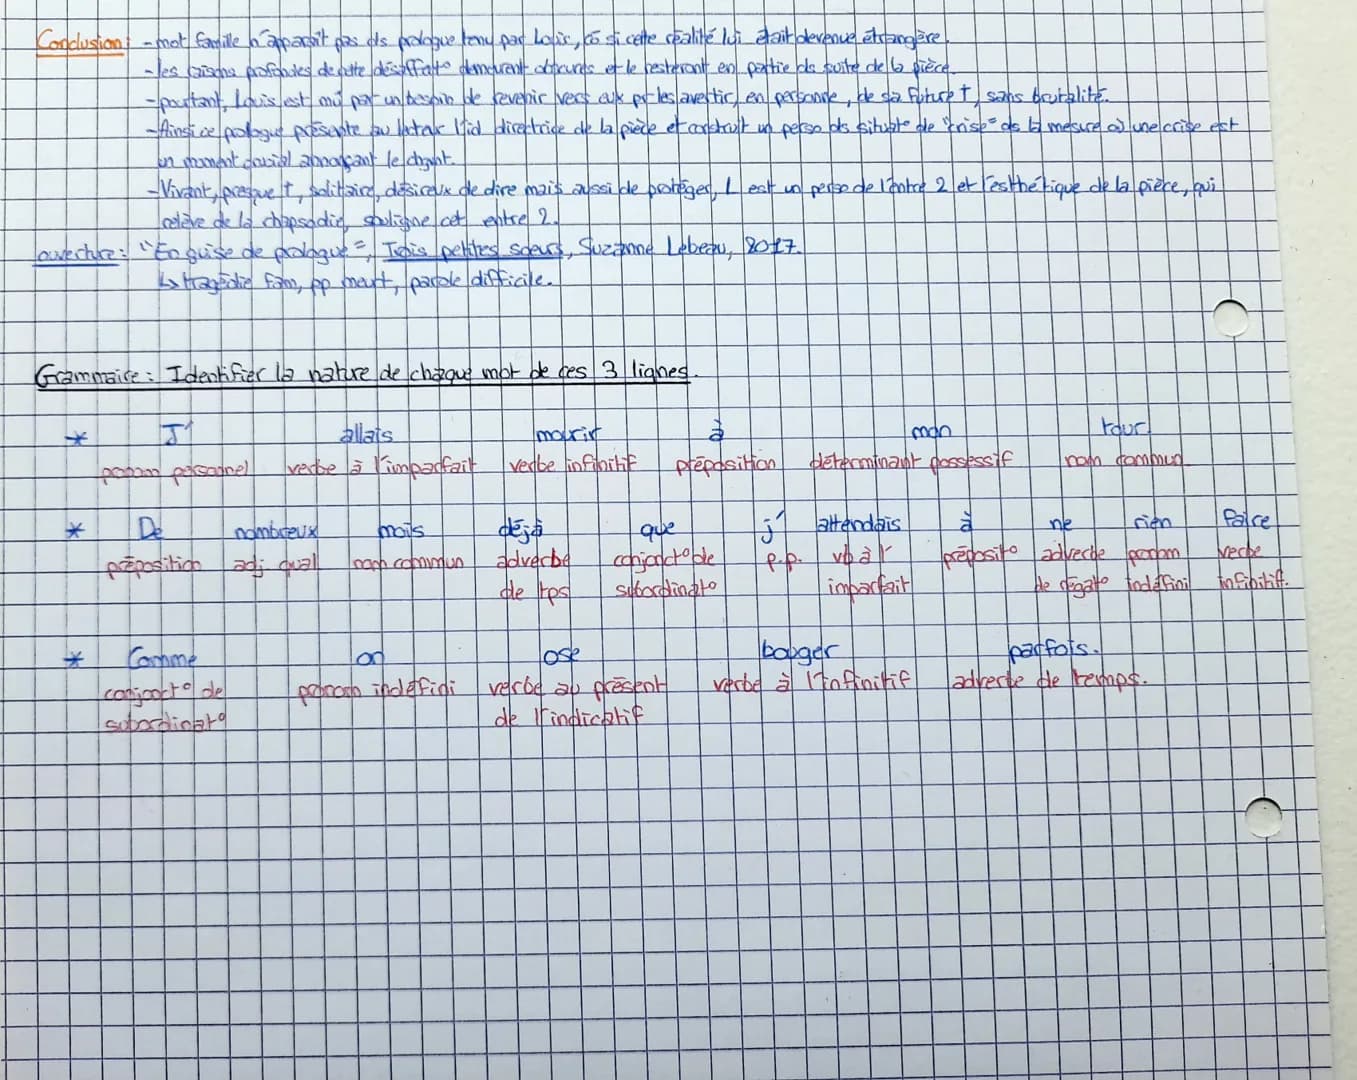 Conclusion : - mot famille n'apparait pas ds prologue tenu par Louis, co si cette réalité lui était devenue étrangère.
- les raisons profondes de cette désaffect° demeurent obscures et le resteront en partie ds suite de la pièce.
- pourtant, Louis est mû par un besoin de revenir vers eux pr les avertir, en personne, de sa future †, sans brutalité.
- Ainsi ce prologue présente au lecteur l'id directrice de la pièce et construit un perso ds situat° de "crise" ds la mesure où une crise est
un moment crucial annonçant le chgnt.
- Vivant, presque †, solitaire, désireux de dire mais aussi de protéger, L est un perso de l'entre 2 et l'esthétique de la pièce, qui
relève de la rhapsodie, souligne cet entre 2.
ouverture : "En guise de prologue", Trois petites soeurs, Suzanne Lebeau, 2017.
↳ tragédie fam, pp meurt, parole difficile.
Grammaire : Identifier la nature de chaque mot de ces 3 lignes.
* J' allais mourir à mon tour
pronom personnel verbe à l'imparfait verbe infinitif préposition déterminant possessif nom commun
* De nombreux mois déjà que j' attendais à ne rien faire
préposition adj qual nom commun adverbe conjonct° de p.p. vb à l' préposit° adverbe pronom verbe
de tps subordinat° imparfait de négat° indéfini infinitif.
* Comme on ose bouger parfois.
conjonct° de pronom indéfini verbe au présent verbe à l'infinitif adverbe de temps.
subordinat° de l'indicatif